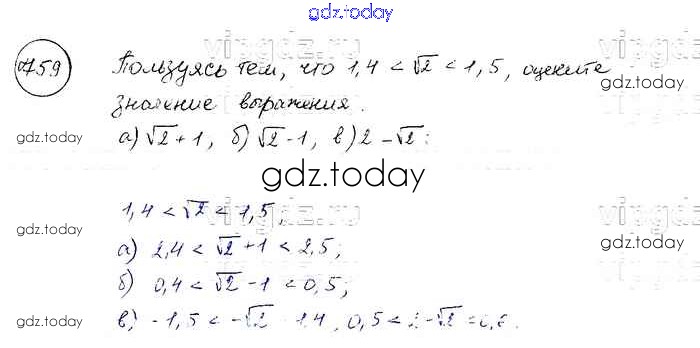 gdz.today
759 Пользуясь тем, что 1,4 < √2 < 1,5, оцените
значение выражения.
gdz.today
а) √2 + 1, б) √2 - 1, в) 2 - √2:
gdz.today
gdz.today
1,4 < √2 < 1,5,
gdz.today
а) 2,4 < √2 + 1 < 2,5;
б) 0,4 < √2 - 1 < 0,5;
gdz.today
в) -1,5 < -√2 -1,4, 0,5 < 2-√2 < 0,6.
gdz.today